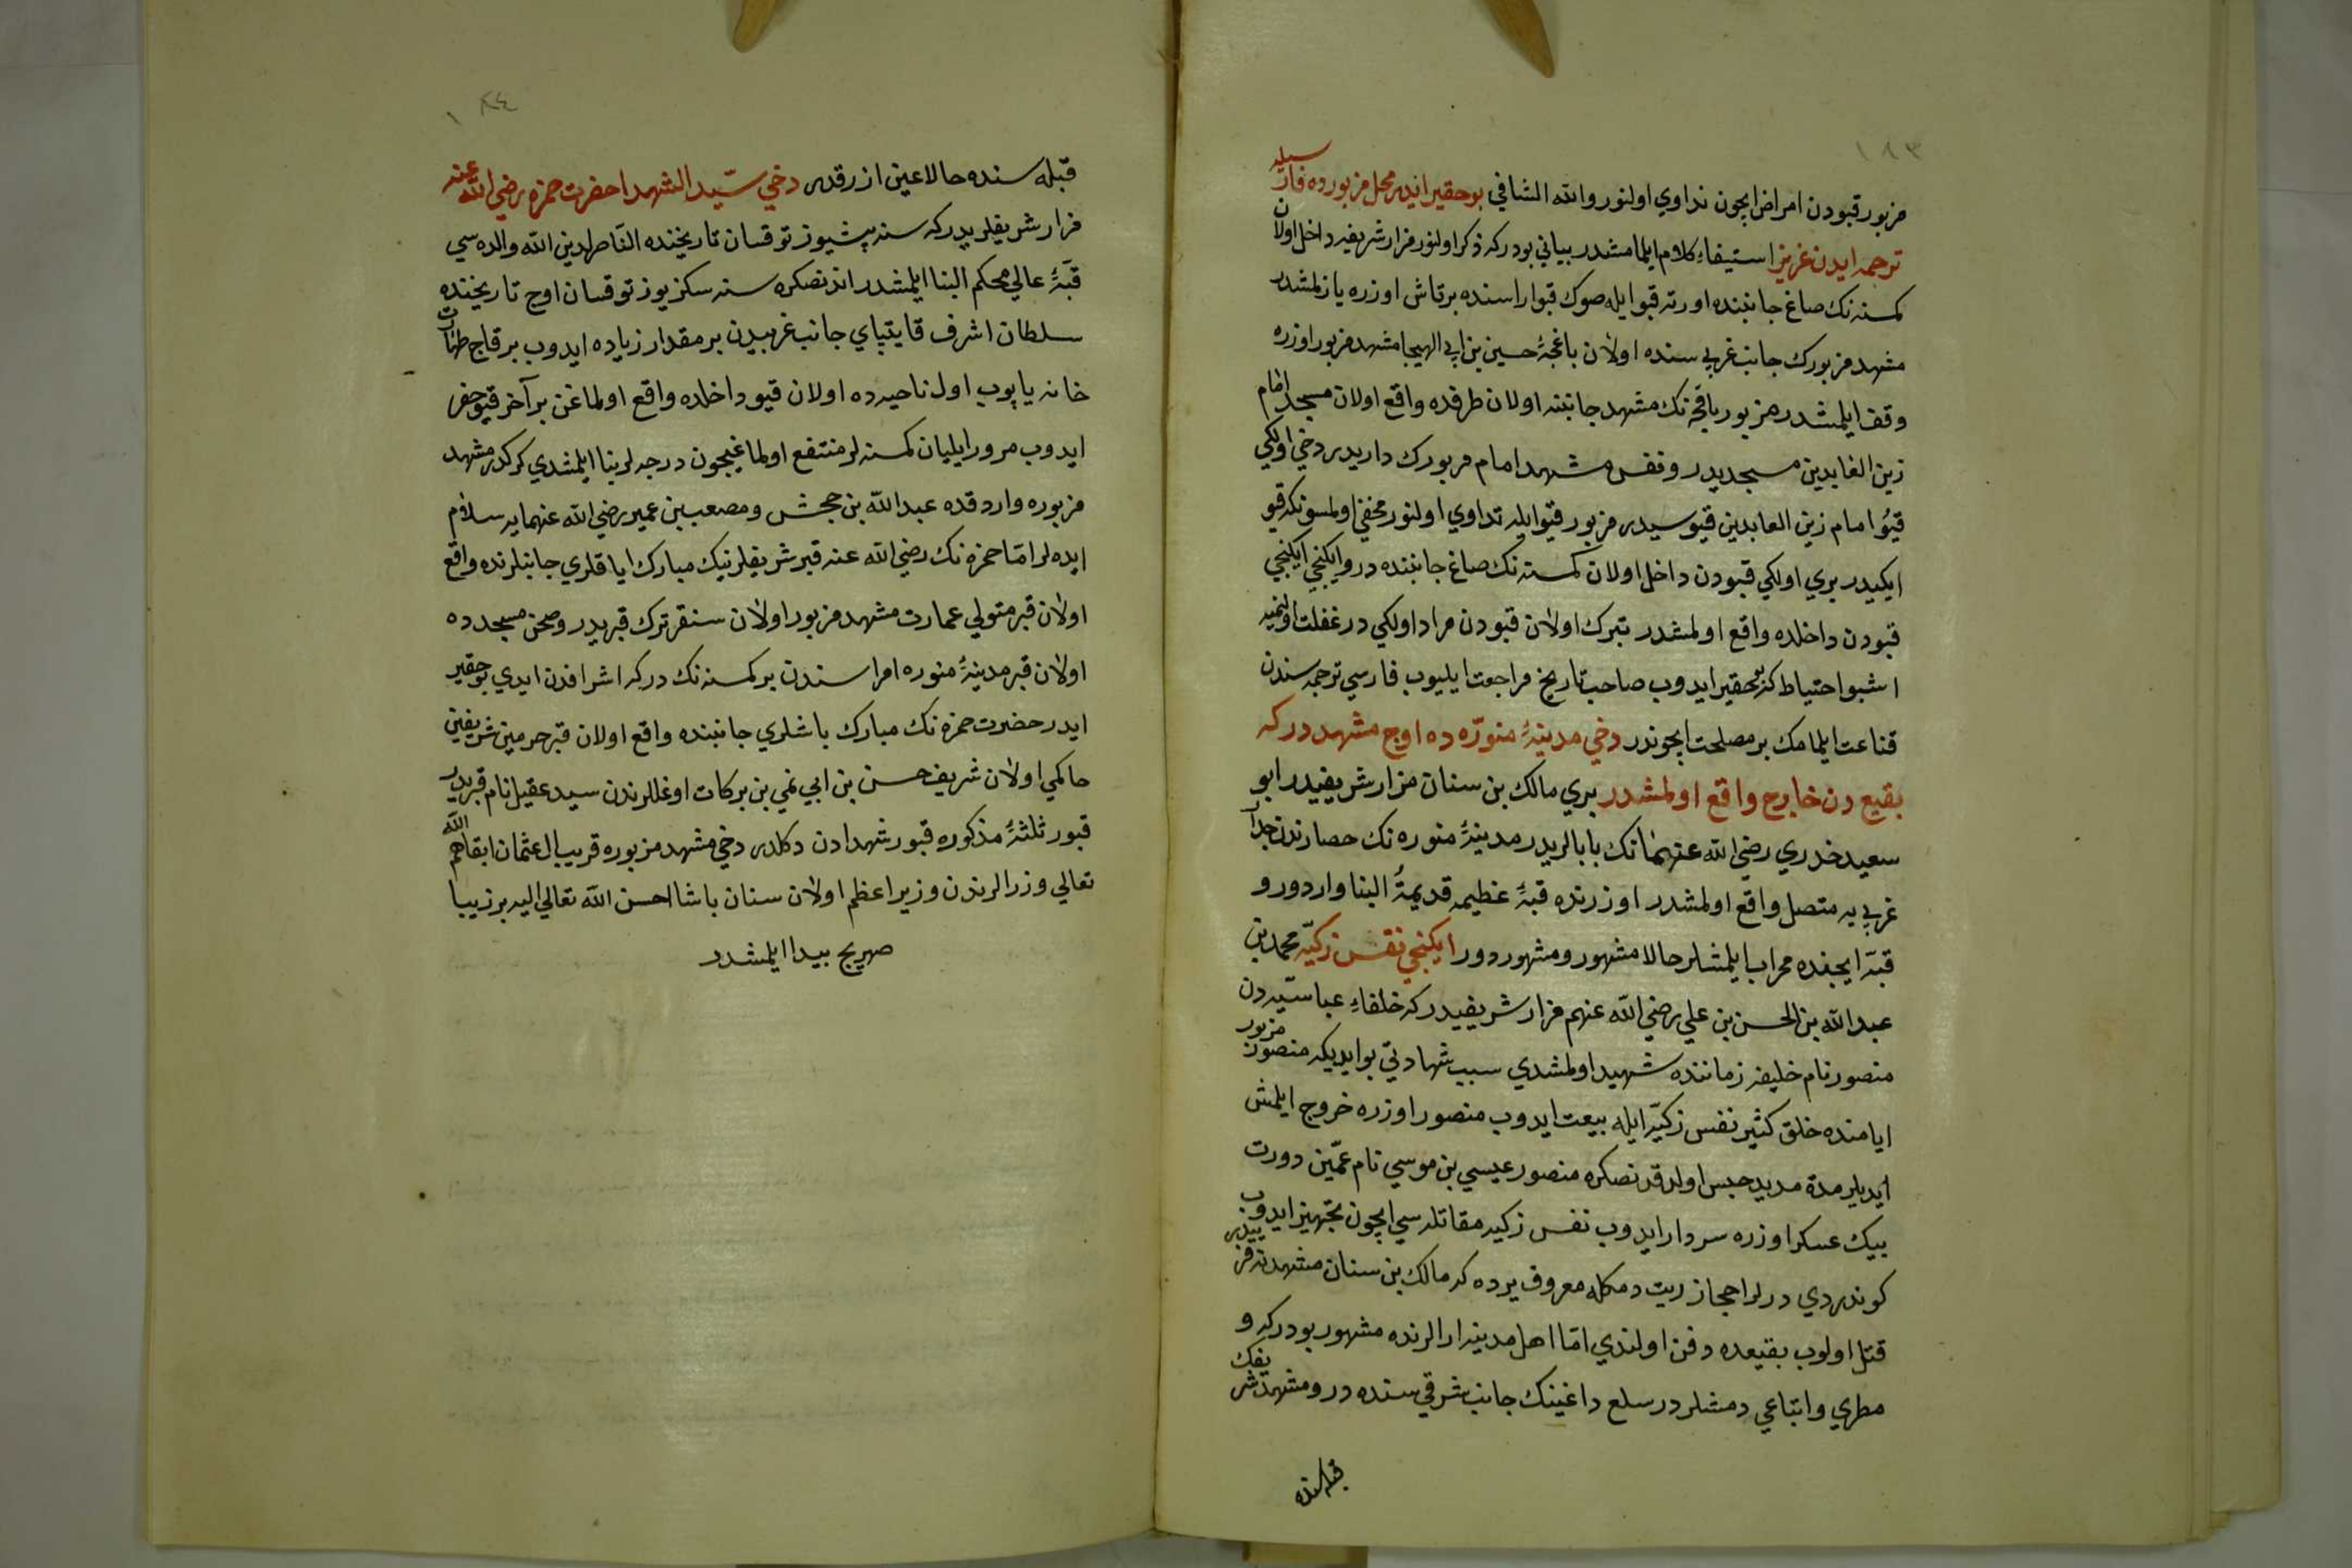 ١٨٣
مزبور قبودن امراض ايچون تداوي اولنور والله الشافي بو حقير ايدر محل مزبورده فارسيله
ترجمه ايدن عزيز استيفاء كلام ايلمامشدر بياني بودر كه ذكر اولنور مزار شريفه داخل اولان
كمسنه نك صاغ جانبنده اورته قبو ايله صوك قبو اراسنده بر تاش اوزره يازلمشدر
مشهد مزبورك جانب غربي سنده اولان باغچهٔ حسين بن ابي الهيجا مشهد مزبور اوزره
وقف ايلمشدر مزبور باقچه نك مشهد جانبنه اولان طرفده واقع اولان مسجد امام
زين العابدين مسجديدر ونفس مشهد امام مزبورك داريدر دخي اولكي
قبو امام زين العابدين قبوسيدر مزبور قبو ايله تداوي اولنور مخفي اولمسونكه قبو
ايكيدر بري اولكي قبودن داخل اولان كمسنه نك صاغ جانبنده در وايكنجي ايكنجي
قبودن داخلده واقع اولمشدر تبرك اولان قبودن مراد اولكي در غفلت اولنميه
اشبو احتياط كه بو حقير ايدوب صاحب تاريخه مراجعت ايليوب فارسي ترجمه سندن
قناعت ايلمامك بر مصلحت ايچوندر دخي مدينهٔ منوّره ده اوچ مشهد در كه
بقيع دن خارج واقع اولمشدر بري مالك بن سنان مزار شريفيدر ابو
سعيد خدري رضي الله عنهما نك بابالريدر مدينهٔ منوره نك حصارندن جدار
غربي يه متصل واقع اولمشدر اوزرنده قبهٔ عظيمه قديمة البنا واردر و
قبّه ايچنده محراب ايلمشلر حالا مشهور ومشهوردور ايكنجي نفس زكيّه محمد بن
عبد الله بن الحسن بن علي رضي الله عنهم مزار شريفيدر كه خلفاء عباسيّه دن
منصور نام خليفه زماننده شهيد اولمشدي سبب شهادتي بو ايديكه منصور مزبور
ايامنده خلق كثير نفس زكيّه ايله بيعت ايدوب منصور اوزره خروج ايلمش
ايديلر مدة مديد حبس اولدقدنصكره منصور عيسي بن موسي نام عمّين دورت
بيك عسكر اوزره سردار ايدوب نفس زكيه مقاتله سي ايچون تجهيز ايدوب
كوندردي درلر احجاز زيت دمكله معروف يرده كه مالك بن سنان مشهدنه قريبدر
قتل اولوب بقيعده دفن اولندي امّا اهل مدينه ارالرنده مشهور بودر كه و
مطري واتباعي دمشلر در سلع داغينك جانب شرقي سنده در ومشهد شريفك
قبله سنده
١٨٤
قبله سنده حالا عين ازرقدر دخي سيّد الشهدا حضرت حمزه رضي الله عنه
مزار شريفلريدر كه سنه بيشيوز توقسان تاريخنده الناصر لدين الله والده سي
قبّهٔ عالي محكم البنا ايلمشدر اندنصكره سنه سكز يوز توقسان اوچ تاريخنده
سلطان اشرف قايتباي جانب غربيدن بر مقدار زياده ايدوب بر قاچ طهارت
خانه ياپوب اول ناحيه ده اولان قيو داخلده واقع اولماغن بر آخر قيو حفر
ايدوب مرور ايليان كمسنه لر منتفع اولماغيچون درجه لر بنا ايلمشدي كركدر مشهد
مزبوره واردقده عبد الله بن جحش ومصعب بن عمير رضي الله عنهمايه سلام
ايده لر امّا حمزه نك رضي الله عنه قبر شريفلرينك مبارك اياقلري جانبلرنده واقع
اولان قبر متولي عمارت مشهد مزبور اولان سنقر ترك قبريدر وصحن مسجدده
اولان قبر مدينهٔ منوره امراسندن بر كمسنه نك در كه اشرافدن ايدي بو حقير
ايدر حضرت حمزه نك مبارك باشلري جانبنده واقع اولان قبر حرمين شريفين
حاكمي اولان شريف حسن بن ابي نمي بن بركات اوغللرندن سيد عقيل نام قبريدر
قبور ثلثهٔ مذكوره قبور شهدادن دكلدر دخي مشهد مزبوره قريب ال عثمان ابقاهم الله
تعالي وزرالرندن وزير اعظم اولان سنان پاشا احسن الله تعالي اليه بر زيبا
صهريج پيدا ايلمشدر